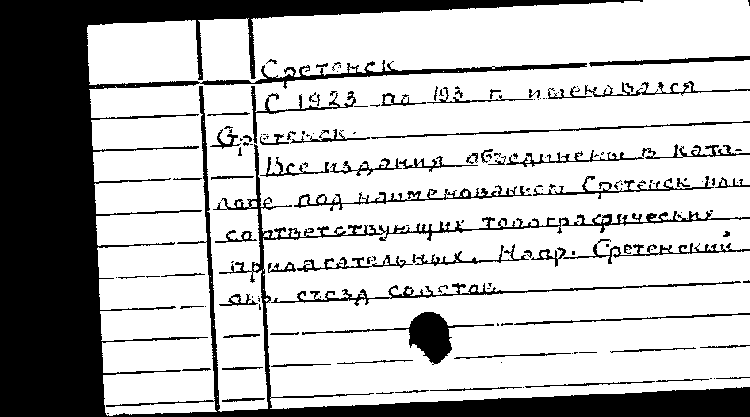 Сретенск
С 1923 по 193 г. именовался
Сретенск.
Все издания объединены в ката-
логе под наименованием Сретенск или
соответствующих топографических
прилагательных. Напр. Сретенский
окр. съезд советов.